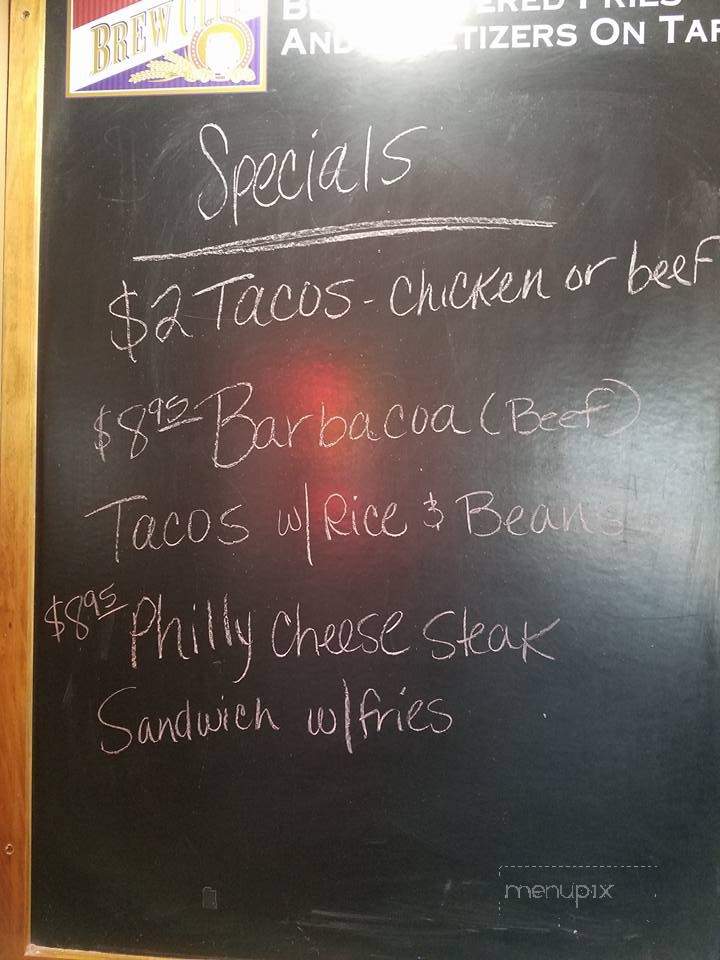 BREW
ERED FRIES
AND TIZERS ON TAP
Specials
$2 Tacos - chicken or beef
$8.95 - Barbacoa (Beef)
Tacos w/ Rice & Beans
$8.95 Philly Cheese Steak
Sandwich w/ fries
menupix